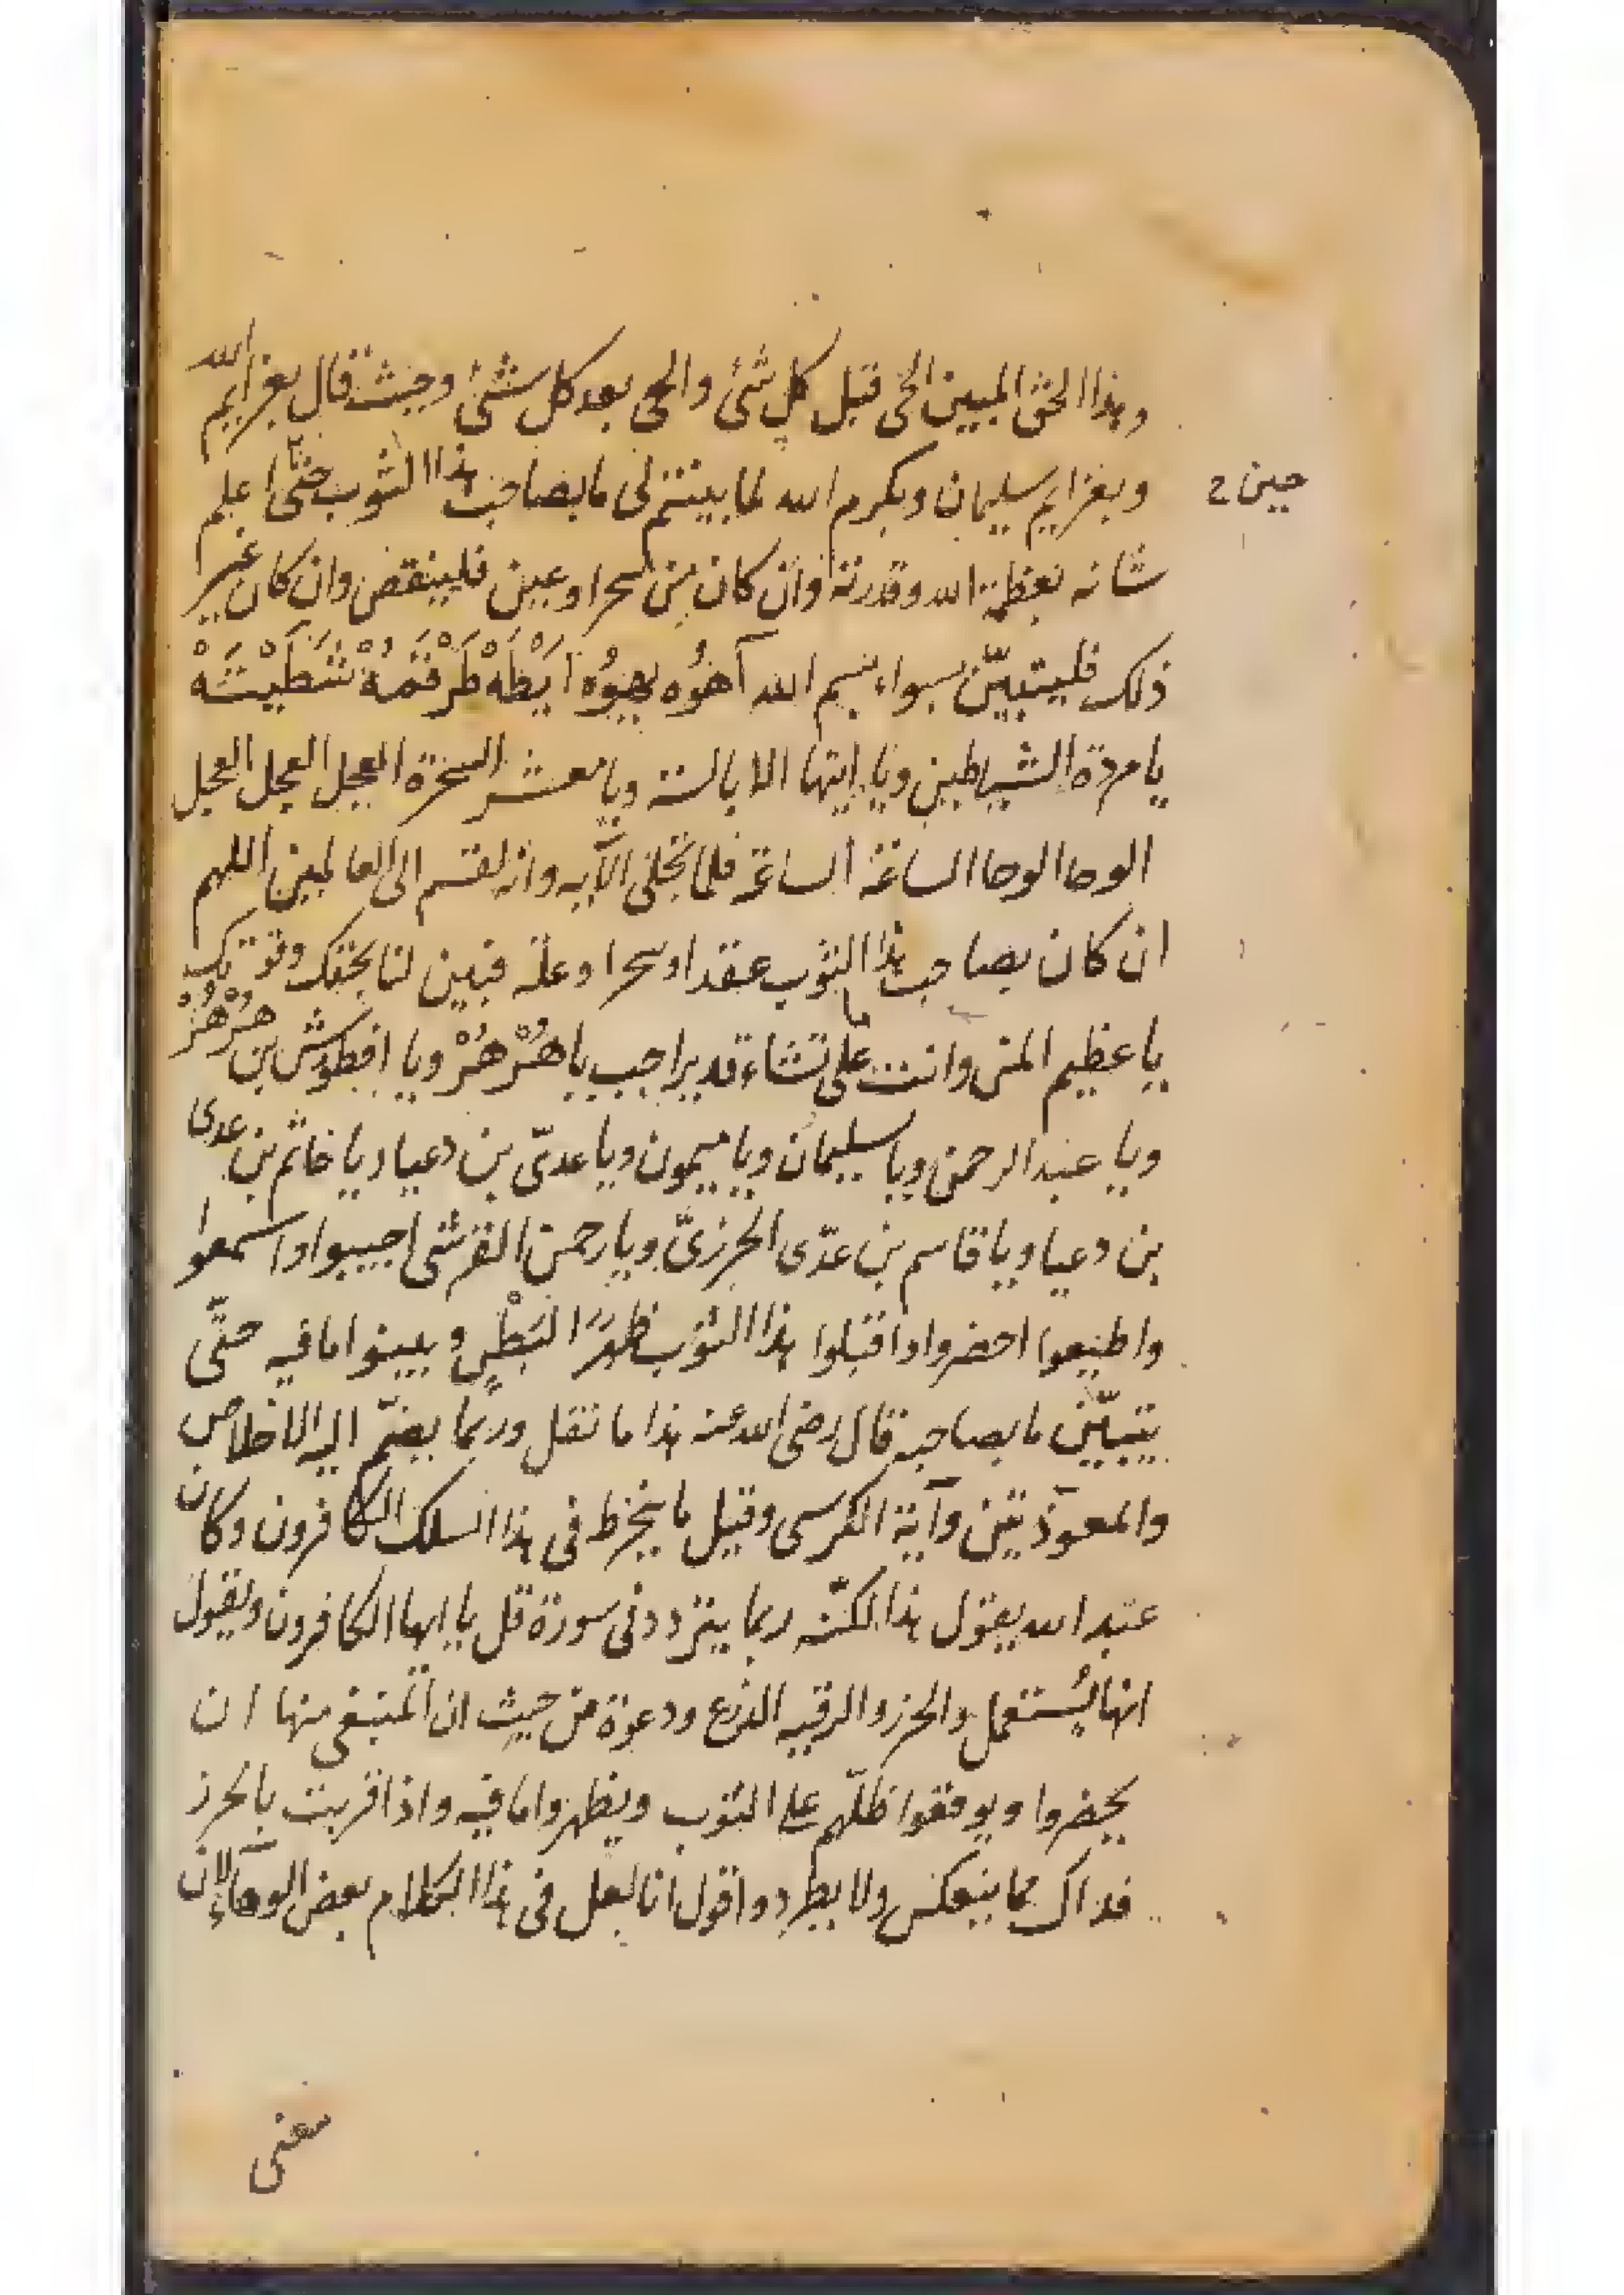 وهذا الحق المبين الحى قبل كل شئ والحى بعد كل شئ وحيث قال بعزايم الله
حين ح
وبعزايم سليمان وبكرم الله لما بينتم لى ما بصاحب هذا الثوب حتى اعلم
شانه بعظمة الله وقدرته وان كان من سحر او عين فلينقض وان كان غير
ذلك فليتبيّن سواء بسم الله آهؤه يهيوُه اَيَطَهْ طَرْقَمَهْ شَطَيْشَهْ
يا مردة الشياطين ويا ايتها الابالسة ويا معشر السحرة العجل العجل العجل
الوحا الوحا الساعة الساعة فلما تجلى الآيه وانه لقسم الى العالمين اللهم
ان كان بصاحب هذا الثوب عقد او سحر او علة فبين لنا بحقك وقوتك
يا عظيم المن وانت على ما تشاء قدير اجب يا هُرْهُرْ ويا افطوش بن هُرْهُرْ
ويا عبد الرحمن ويا سليمان ويا ميمون ويا عدىّ بن دعيا ويا خاتم بن عدى
بن دعيا ويا قاسم بن عدّى الجرزىّ ويا رحمن القرشى اجيبوا واسمعوا
واطيعوا احضروا واقبلوا هذا الثوب ظهرًا لبَطْنٍ وبينوا ما فيه حتّى
يتبيّن ما بصاحبه قال رضى الله عنه هذا ما نقل وربما يضمّ اليه الاخلاص
والمعوّذتين وآية الكرسى وقيل ما ينخرط فى هذا السلك الكافرون وكان
عبد الله يقول هذا لكنّه ربما يتردد فى سورة قل يا ايها الكافرون ويقول
انها يُستعمل والحرز والرقيه الذرع ودعوة من حيث ان المبتغى منها ان
يحضروا ويوقعوا ظلّهم على الثوب ويظهروا ما فيه واذا قربت بالحرز
فذاك مما ينعكس ولا يطرد واقول انا لعل فى هذا الكلام بعض الوهاء لان
معنى